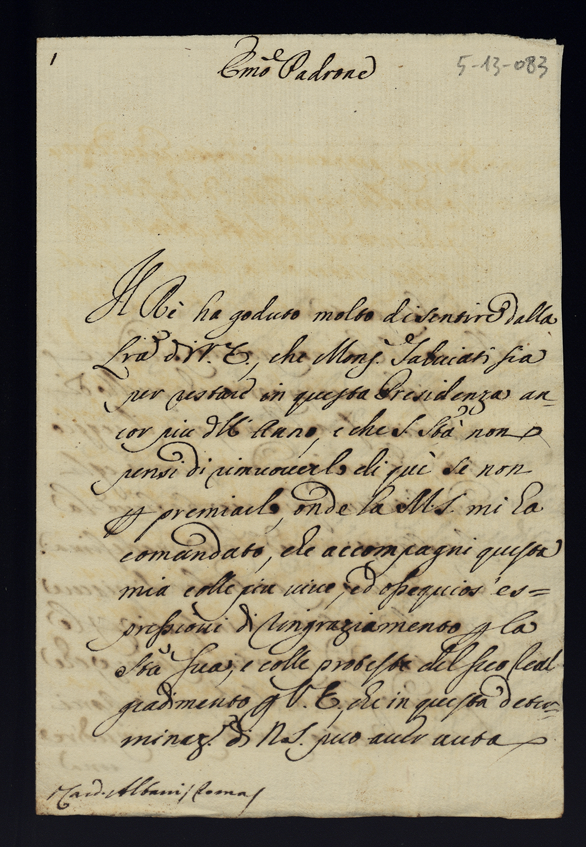 1
Emo͛ Padrone
5-13-083
Il Rè ha goduto molto di sentire dalla
Lrã di V. E., che Mons.r Salviati sia
per restare in questa Presidenza an-
cor più d'un Anno, e che S. Stà non
pensi di rimuoverlo di quì se non
p premiarlo, onde la M.S. mi ha
comandato, che accompagni questa
mia colle più vive, ed ossequiose es=
pressioni di ringraziamento p la
Stà Sua, e colle proteste del suo Real
gradimento p V. E., che in questa deter-
minaz.e di N.S. può aver avuta
Card. Albani / Roma /